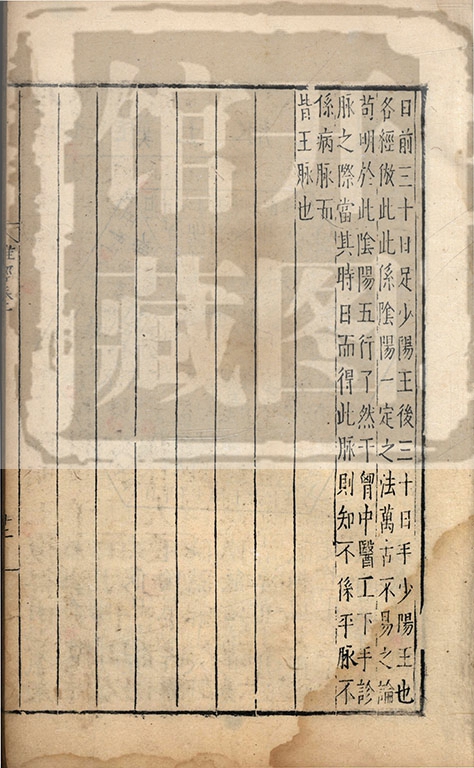 日前三十日足少陽王後三十日手少陽王也
各經倣此此係陰陽一定之法萬古不易之論
茍明於此陰陽五行了然于胷中醫工下手診
脉之際當其時日而得此脉則知不係平脉不
係病脉而
皆王脉也